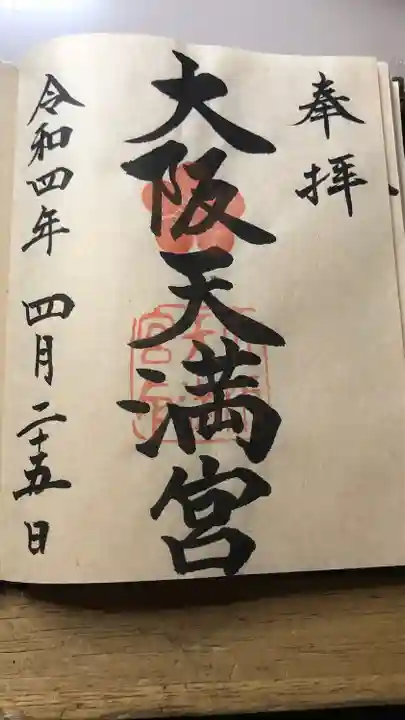 奉拝
大阪天満宮
令和四年 四月二十五日